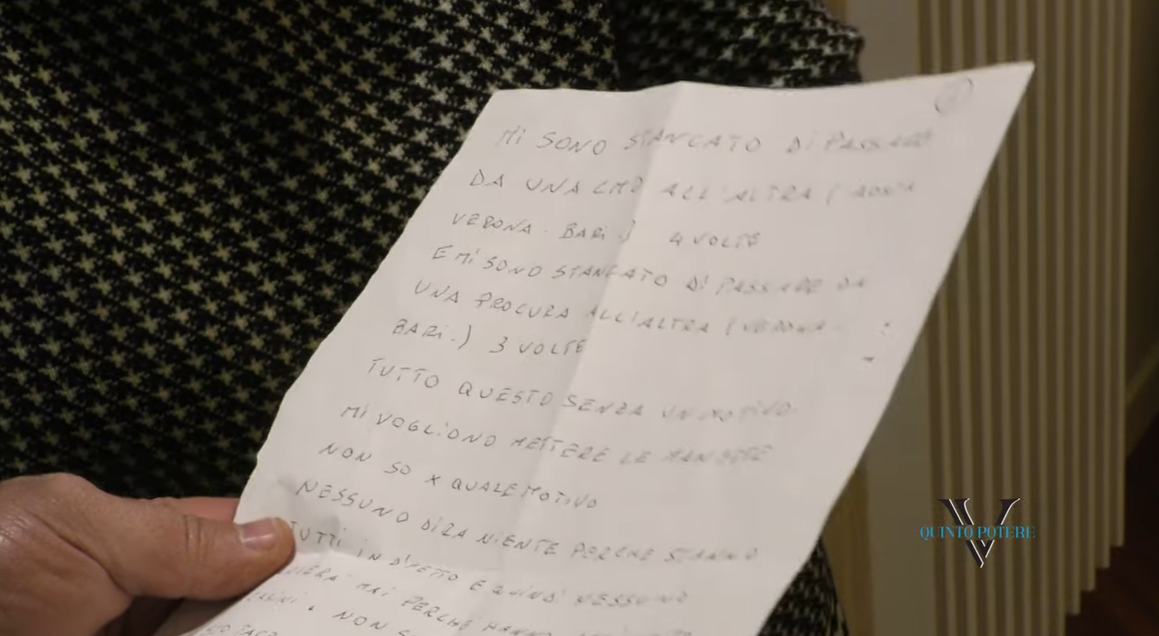 1
MI SONO STANCATO DI PASSARE
DA UNA CMO ALL'ALTRA (AOSTA
VERONA - BARI.) 4 VOLTE
E MI SONO STANCATO DI PASSARE DA
UNA PROCURA ALL'ALTRA (VERONA -
BARI.) 3 VOLTE
TUTTO QUESTO SENZA UN MOTIVO.
MI VOGLIONO METTERE LE MANETTE
NON SO X QUALE MOTIVO
NESSUNO DIRA NIENTE PERCHE SONO
TUTTI IN DIFETTO E QUINDI NESSUNO
MAI PERCHE HANNO
NON
V
QUINTO POTERE